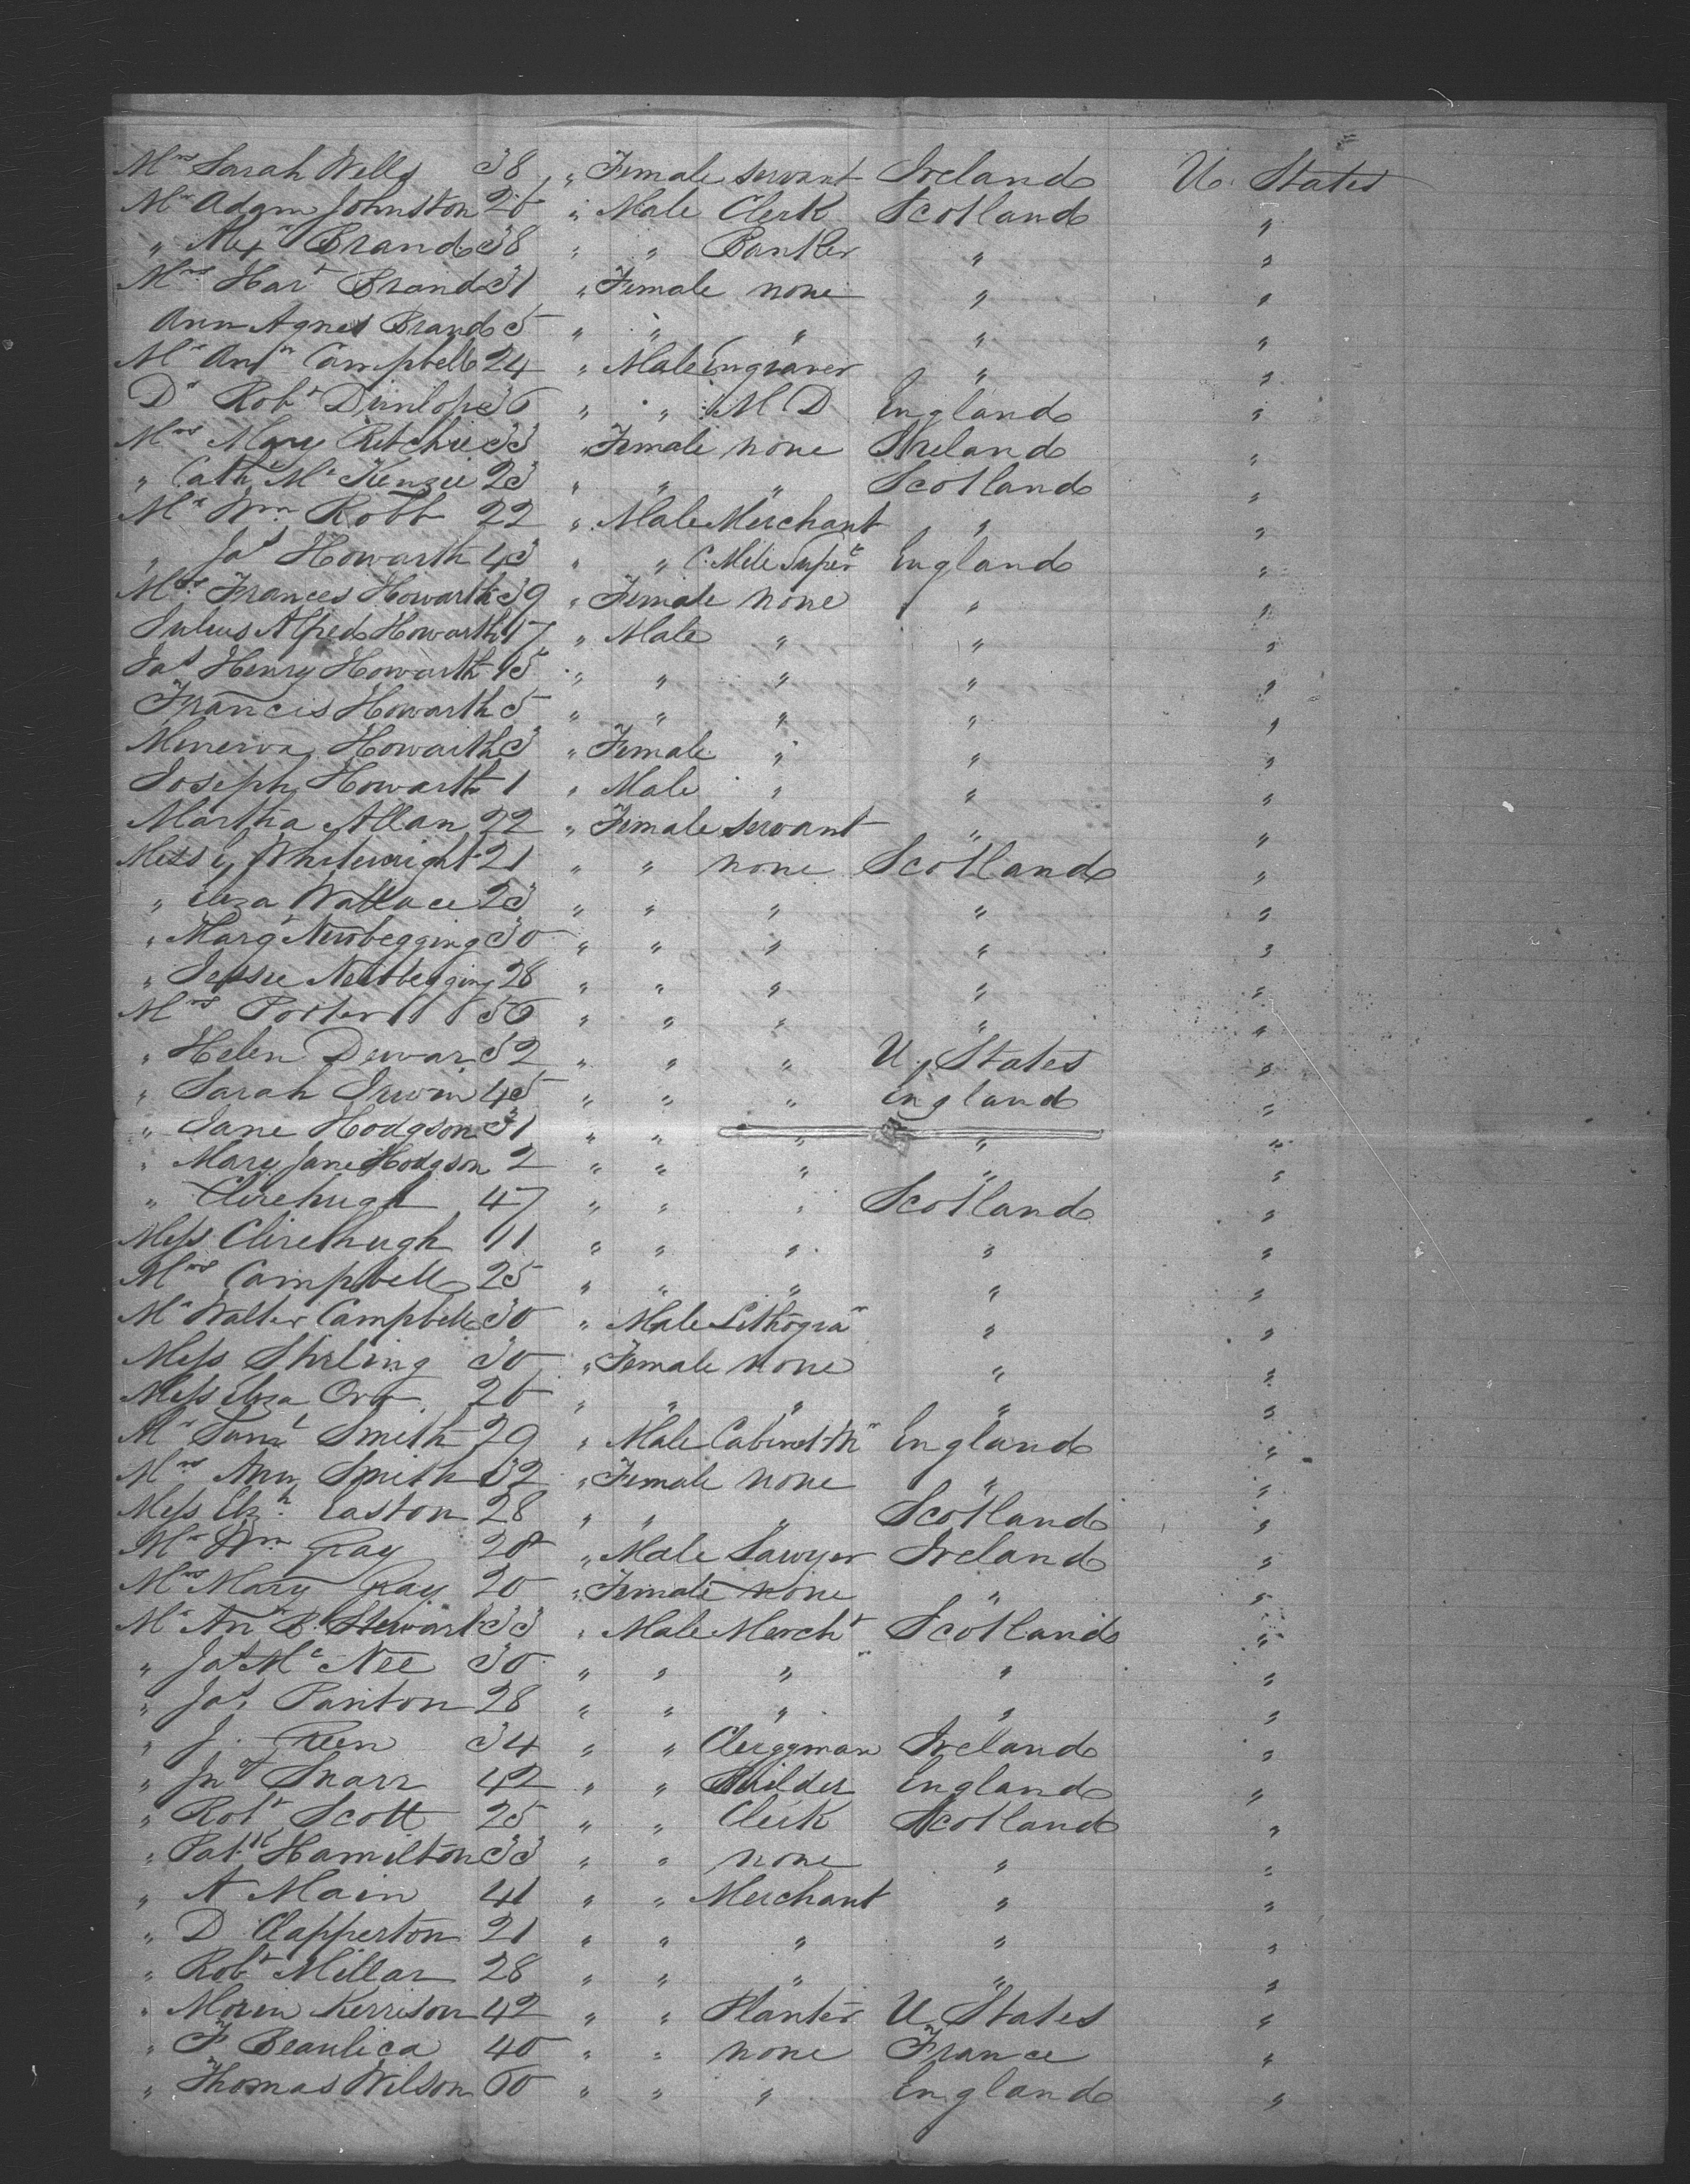 Mrs Sarah Wells 38 " Female servant Ireland U. States
Mr Adam Johnston 26 " Male Clerk Scotland "
" Alexr Brand 38 " " Banker " "
Mrs Hart Brand 31 " Female none " "
Ann Agnes Brand 5 " " " " "
Mr Campbell 24 " Male Engraver " "
Dr Robt Dunlop 36 " " M D England "
Mrs Mary Ritchie 33 " Female none Ireland "
" Cathe McKenzie 23 " " " Scotland "
Mr Wm Robb 22 " Male Merchant " "
" Jas Howarth 43 " " England "
Mrs Frances Howarth 39 " Female none " "
Julius Alfred Howarth 17 " Male " " "
Jas Henry Howarth 15 " " " " "
Francis Howarth 5 " " " " "
Minerva Howarth 3 " Female " " "
Joseph Howarth 1 " Male " " "
Martha Allan 22 " Female servant " "
Miss Whitewright 21 " " none Scotland "
" Eliza Wallace 23 " " " " "
" Margt Newbegging 30 " " " " "
" Jessie Newbegging 28 " " " " "
Mrs Porter 56 " " " " "
" Helen Dewar 52 " " " U. States "
" Sarah Irwin 45 " " " England "
" Jane Hodgson 31 " " " " "
" Mary Jane Hodgson 2 " " " " "
" Clirehugh 47 " " " Scotland "
Miss Clirehugh 11 " " " " "
Mrs Campbell 25 " " " " "
Mr Walter Campbell 30 " Male Lithogrār " "
Miss Stirling 30 " Female none " "
Miss Eliza Orr 26 " " " " "
Mr Saml Smith 29 " Male Cabinet-Mr England "
Mrs Ann Smith 32 " Female none " "
Miss Elizh Easton 28 " " " Scotland "
Mr Wm Gray 28 " Male Sawyer Ireland "
Mrs Mary Gray 20 " Female none " "
Mr Stewart 33 " Male Mercht Scotland "
" Jas McNee 30 " " " " "
" Jas Panton 28 " " " " "
" J. 34 " " Clergyman Ireland "
" Jno Snarr 42 " " Builder England "
" Robt Scott 25 " " Clerk Scotland "
" Patk Hamilton 33 " " none " "
" A Main 41 " " Merchant " "
" D Clapperton 21 " " " " "
" Robt Millar 28 " " " " "
" Kerrison 42 " " Planter U. States "
" F Beaulica 40 " " none France "
" Thomas Wilson 60 " " " England "